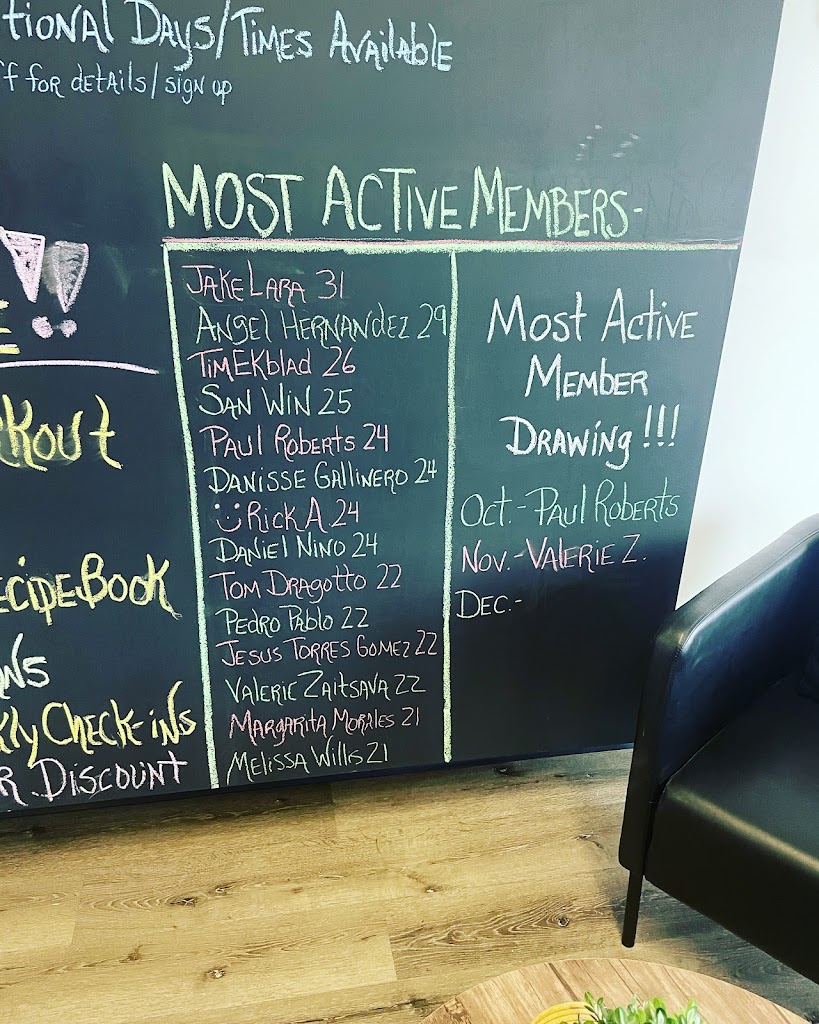 tional Days/Times Available
ff for details/sign up
MOST ACTIVE MEMBERS-
Jake Lara 31
Angel Hernandez 29
Tim Ekblad 26
San Win 25
Paul Roberts 24
Danisse Gallinero 24
Rick A. 24
Daniel Nino 24
Tom Dragotto 22
Pedro Pablo 22
Jesus Torres Gomez 22
Valerie Zaitsava 22
Margarita Morales 21
Melissa Willis 21
Most Active
Member
Drawing !!!
Oct.- Paul Roberts
Nov.- Valerie Z.
Dec.-
E !!
rkout
ecipe Book
ans
kly Check-ins
R Discount